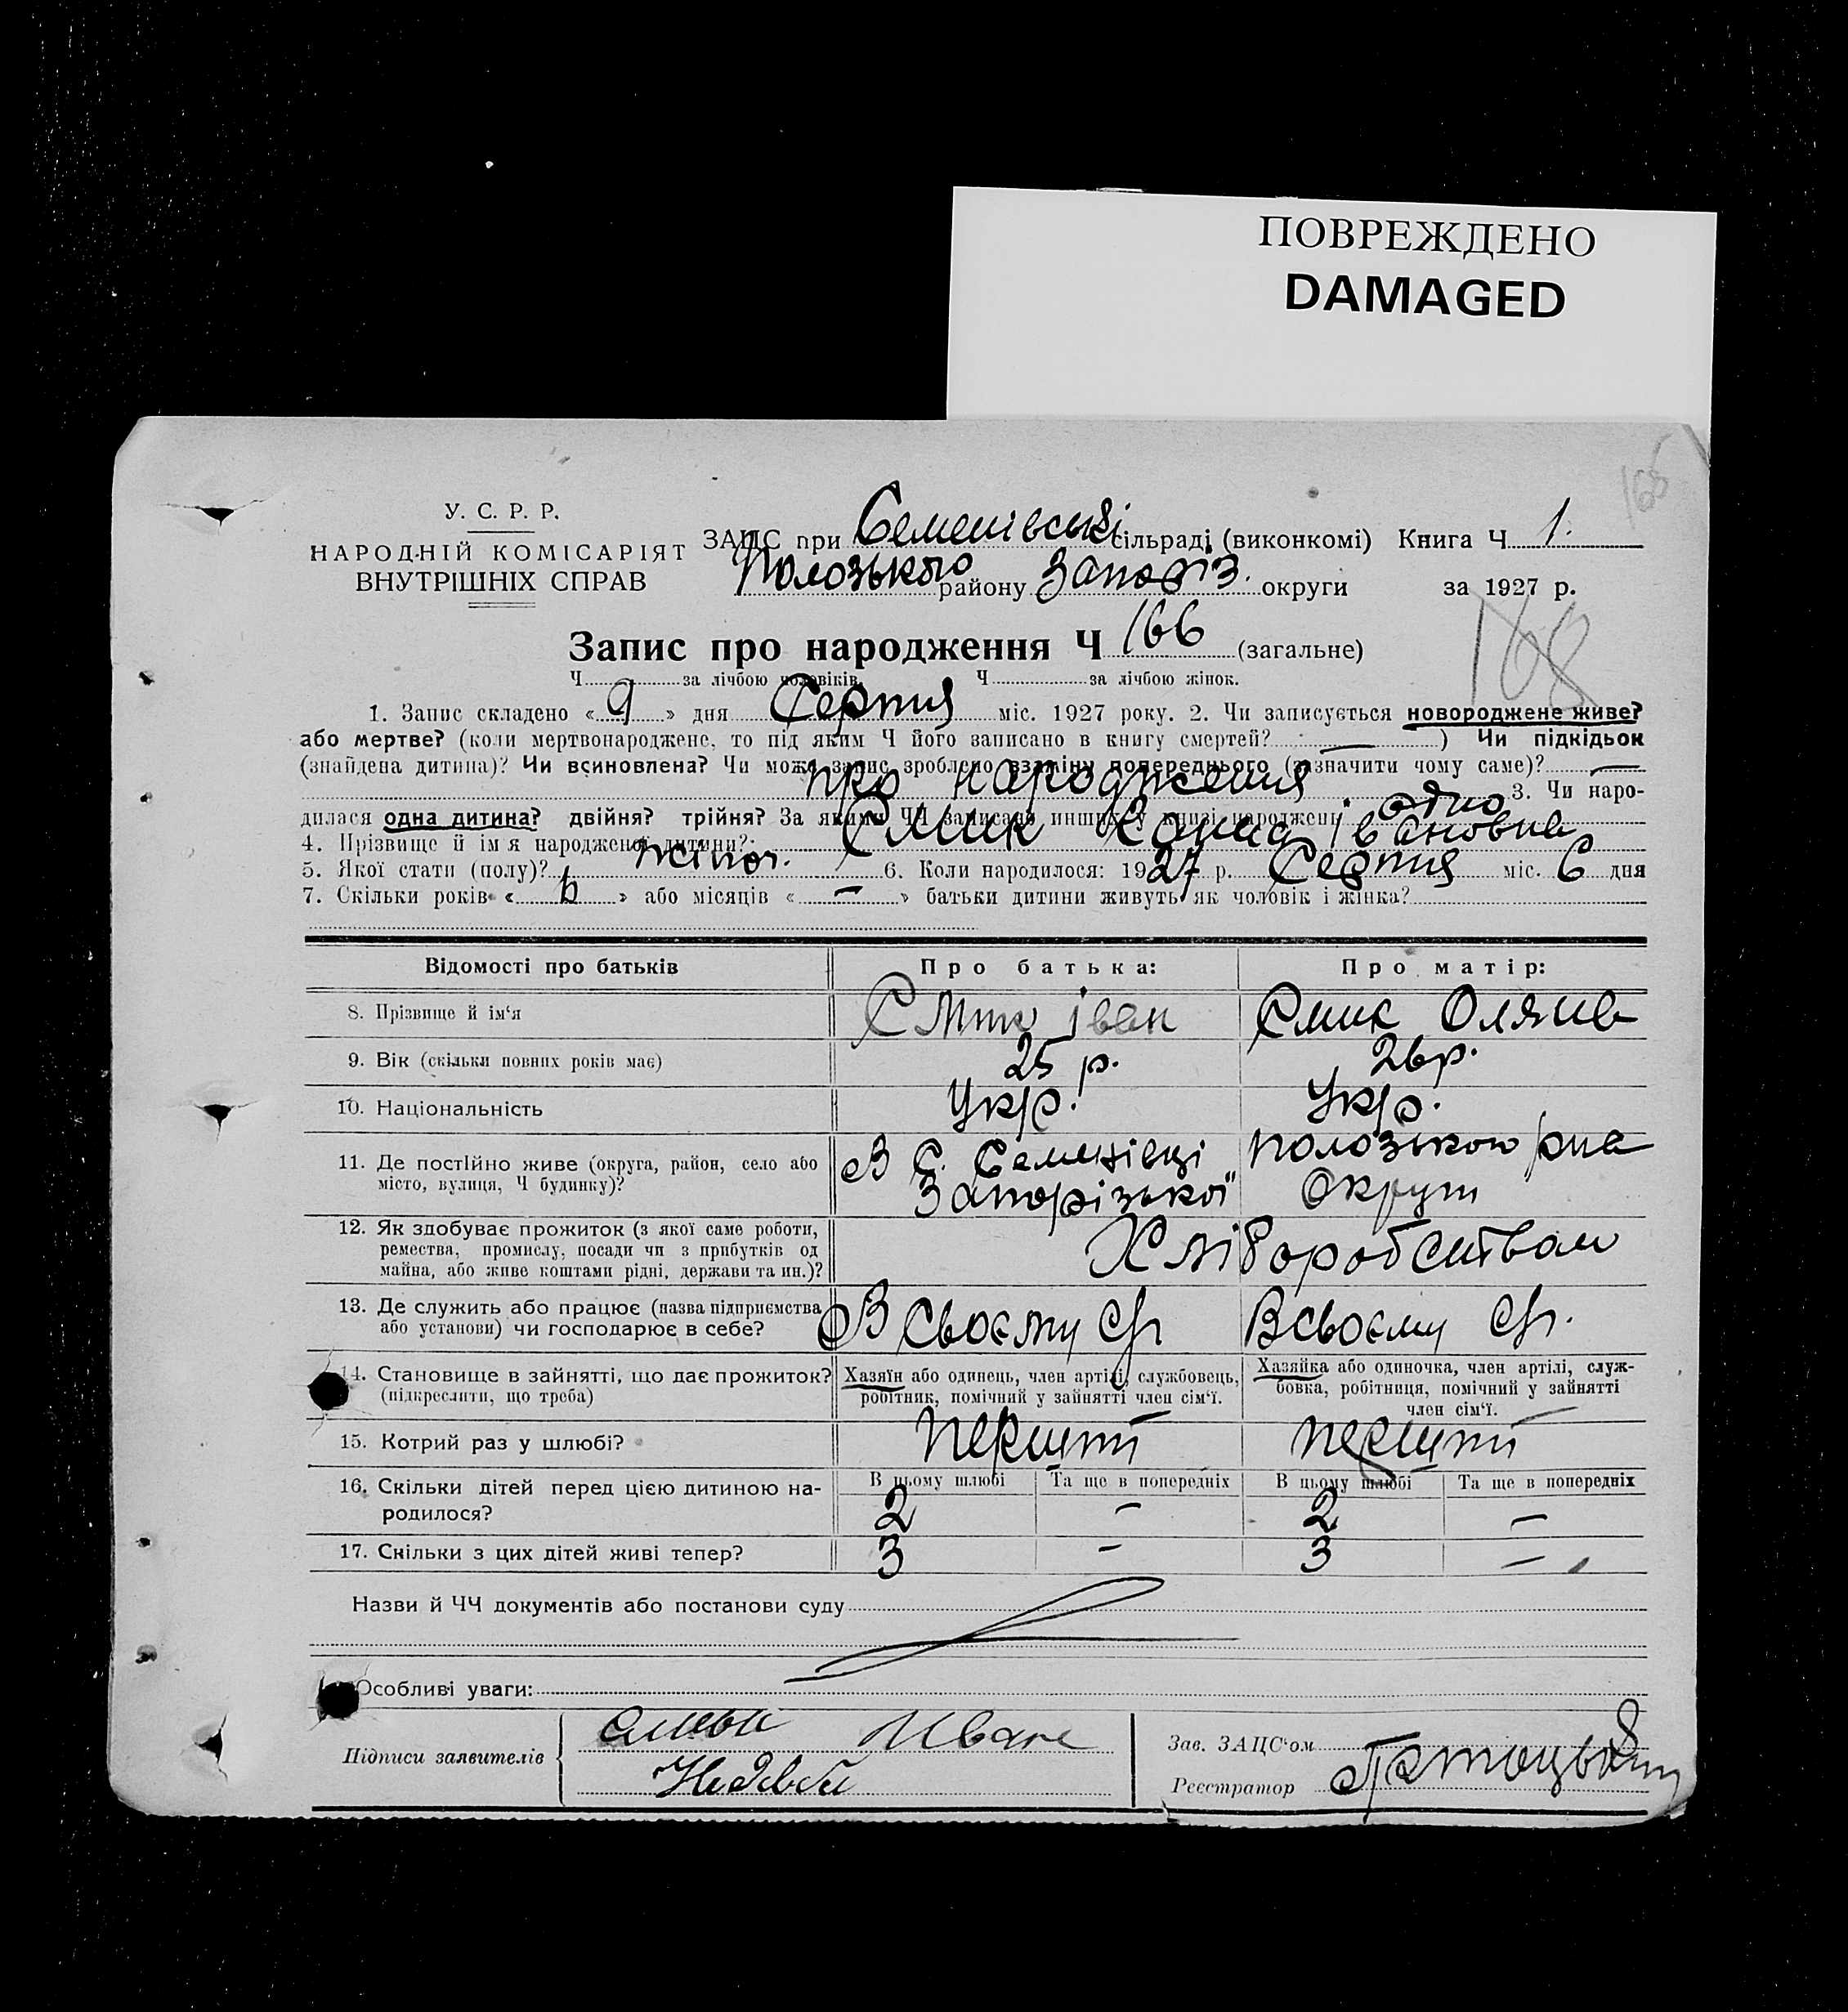 ПОВРЕЖДЕНО
DAMAGED
165
У. С. Р. Р.
НАРОДНІЙ КОМІСАРІЯТ
ВНУТРІШНІХ СПРАВ
ЗАЦС при Семенівській сільраді (виконкомі) Книга Ч 1.
Полозького району Запоріз. округи за 1927 р.
Запис про народження Ч 166 (загальне)
168
Ч за лічбою чоловіків. Ч за лічбою жінок.
1. Запис складено « 9 » дня Серпня міс. 1927 року. 2. Чи записується новороджене живе?
або мертве? (коли мертвонароджене, то під яким Ч його записано в книгу смертей? — ) Чи підкідьок
(знайдена дитина)? Чи всиновлена? Чи може запис зроблено взаміну попереднього (зазначити чому саме)? —
про народження 3. Чи наро-
дилася одна дитина? двійня? трійня? За якими ЧЧ записано инших у книзі народжень одно
4. Прізвище й ім'я народженої дитини? Смик Івановна
5. Якої стати (полу)? жіноч. 6. Коли народилося: 1927 р. Серпня міс. 6 дня
7. Скільки років « 6 » або місяців « — » батьки дитини живуть як чоловік і жінка?
Відомості про батьків Про батька: Про матір:
8. Прізвище й ім'я Смик Іван Смик Оляна
9. Вік (скільки повних років має) 25 р. 26 р.
10. Національність Укр. Укр.
11. Де постійно живе (округа, район, село або В с. Семенівці Полозького рна
місто, вулиця, Ч будинку)? Запорізької Округи
12. Як здобуває прожиток (з якої саме роботи,
ремества, промислу, посади чи з прибутків од Хліборобством
майна, або живе коштами рідні, держави та ин.)?
13. Де служить або працює (назва підприємства В своєму с/г В своєму с/г.
або установи) чи господарює в себе?
14. Становище в зайнятті, що дає прожиток? Хазяїн або одинець, член артілі, службовець, Хазяйка або одиночка, член артілі, служ-
(підкреслити, що треба) робітник, помічний у зайнятті член сім'ї. бовка, робітниця, помічний у зайнятті
член сім'ї.
15. Котрий раз у шлюбі? перший перший
16. Скільки дітей перед цією дитиною на- В цьому шлюбі Та ще в попередніх В цьому шлюбі Та ще в попередніх
родилося? 2 — 2 —
17. Скільки з цих дітей живі тепер? 3 — 3 —
Назви й ЧЧ документів або постанови суду
Особливі уваги:
Підписи заявителів Иван
Зав. ЗАЦС'ом
Реєстратор